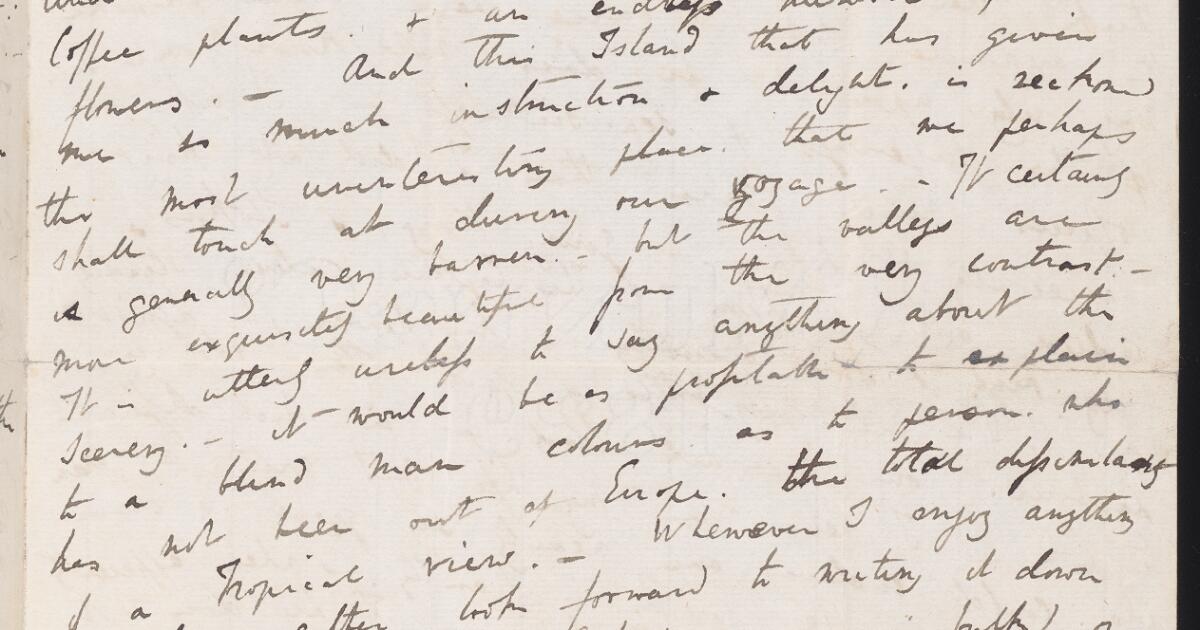 Coffee plants. & an endless number
flowers. — And this Island that has given
me so much instruction & delight. is reckoned
the most uninteresting place. that we perhaps
shall touch at during our voyage. — It certainly
is generally very barren. — but the valleys are
more exquisitely beautiful from the very contrast. —
It is utterly useless to say anything about the
scenery. — it would be as profitable to explain
to a blind man colours. as to person. who
has not been out of Europe. the total dissimilarity
of a Tropical view. — Whenever I enjoy anything
look forward to writing it down